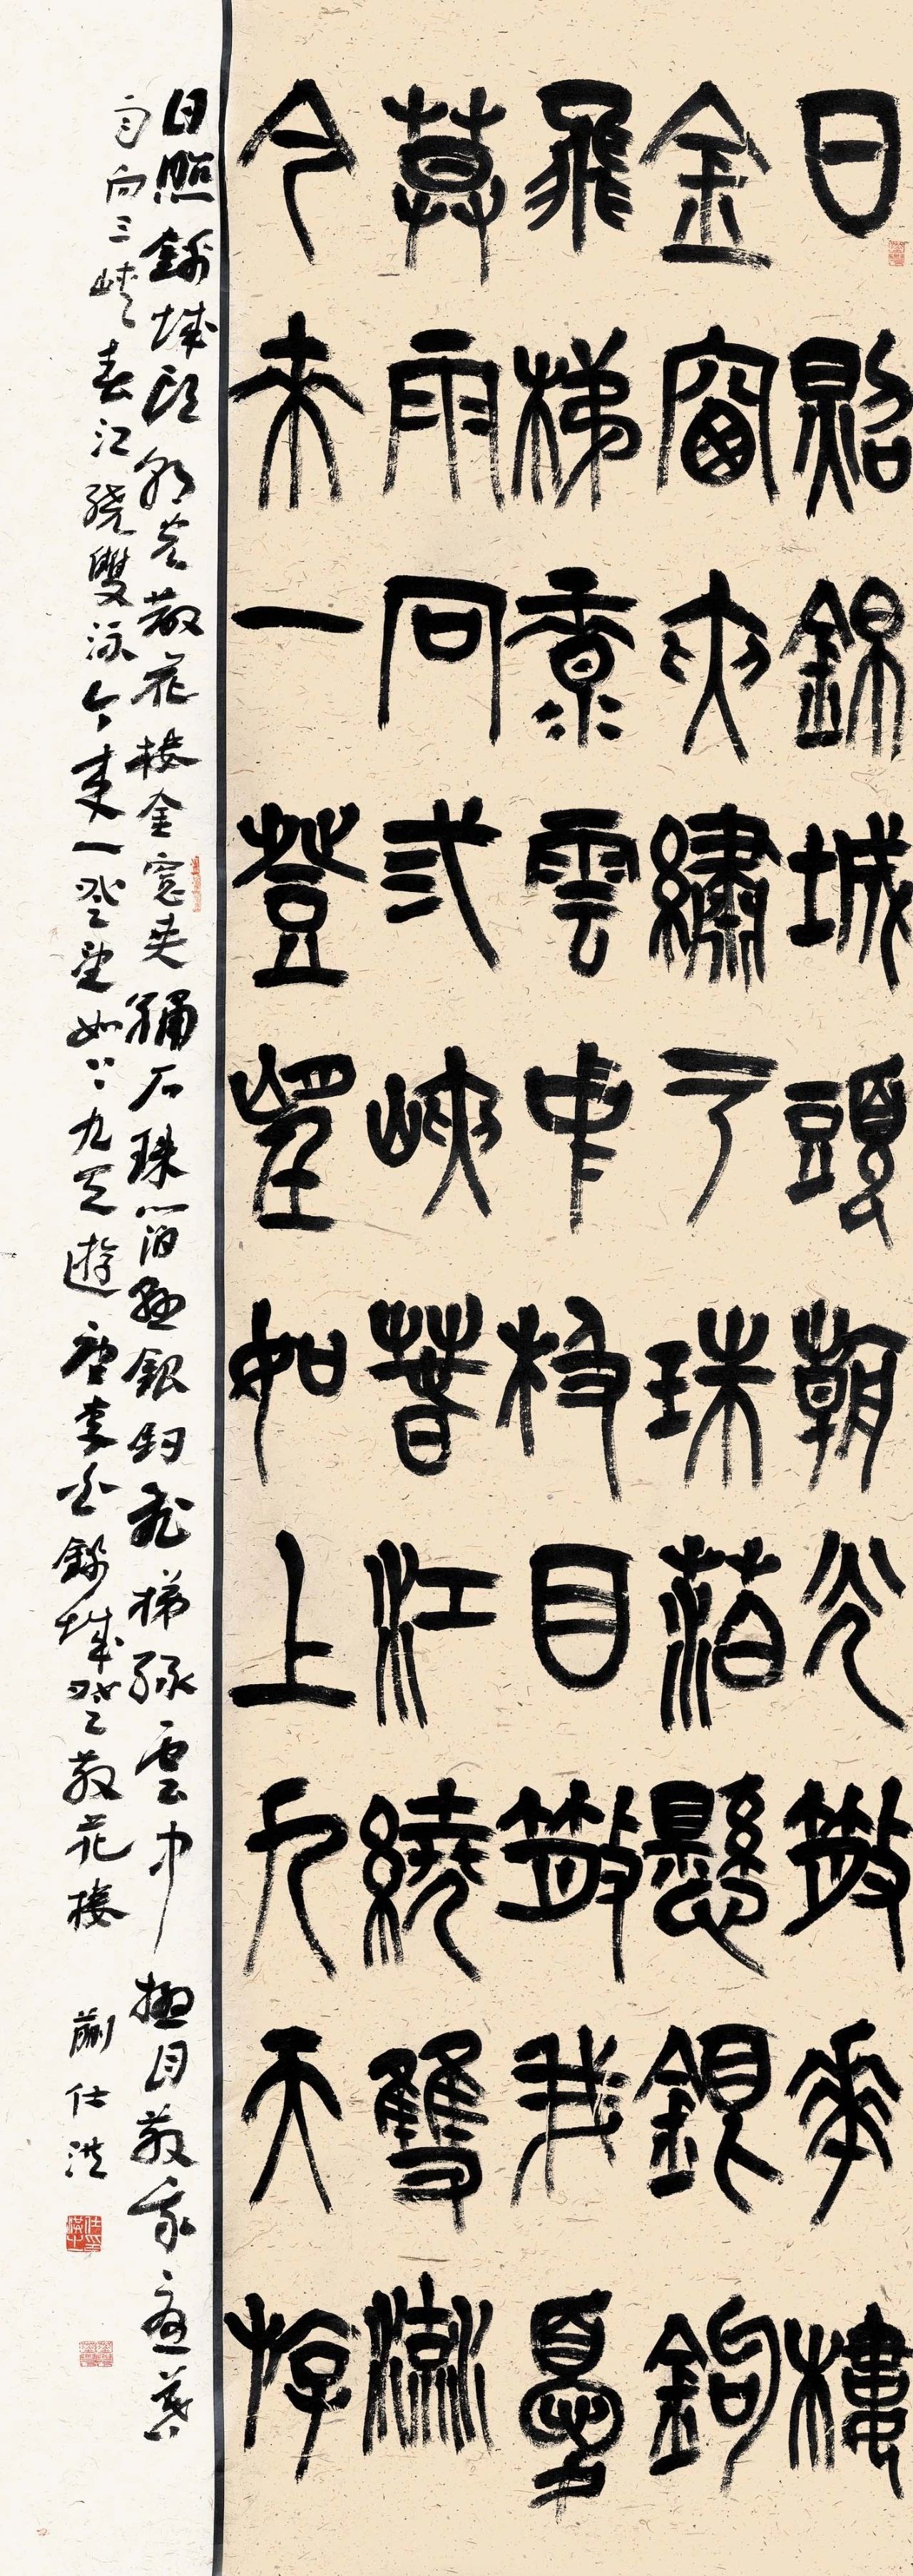 日照錦城頭朝光散華樓
金窗夾繡戶珠箔懸銀鉤
飛梯綠雲中極目散我憂
莫雨向弎峽春江繞雙流
今來一登望如上九天游
日照錦城頭朝光散花樓金窗夾繡戶珠箔懸銀鉤飛梯綠雲中極目散我憂暮
雨向三峽春江繞雙流今來一登望如上九天遊唐李白錦城登散花樓 蒯仕洪